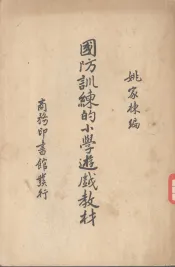 姚家棟編
國防訓練的小學遊戲教材
商務印書館發行